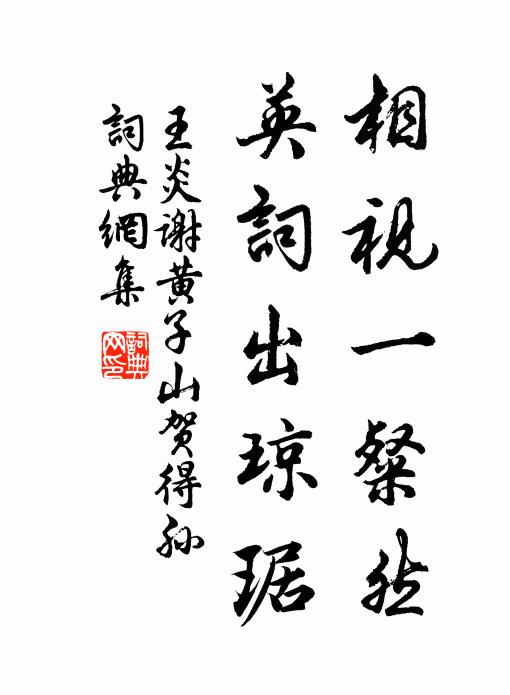 相視一粲然
英詞出琼琚
王炎谢黄子山贺得孙
詞典網集
詞典网印